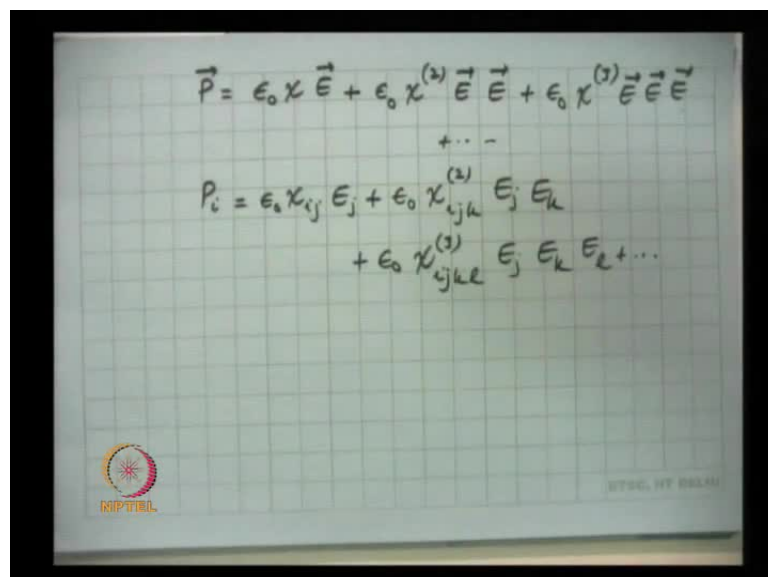 P⃗ = ϵ₀ χ E⃗ + ϵ₀ χ⁽²⁾ E⃗ E⃗ + ϵ₀ χ⁽³⁾ E⃗ E⃗ E⃗
+ ·· –
Pᵢ = ϵ₀ χ_{ij} E_j + ϵ₀ χ_{ijk}^{(2)} E_j E_k
+ ϵ₀ χ_{ijkl}^{(3)} E_j E_k E_l + ...
NPTEL
ETSC, IIT DELHI